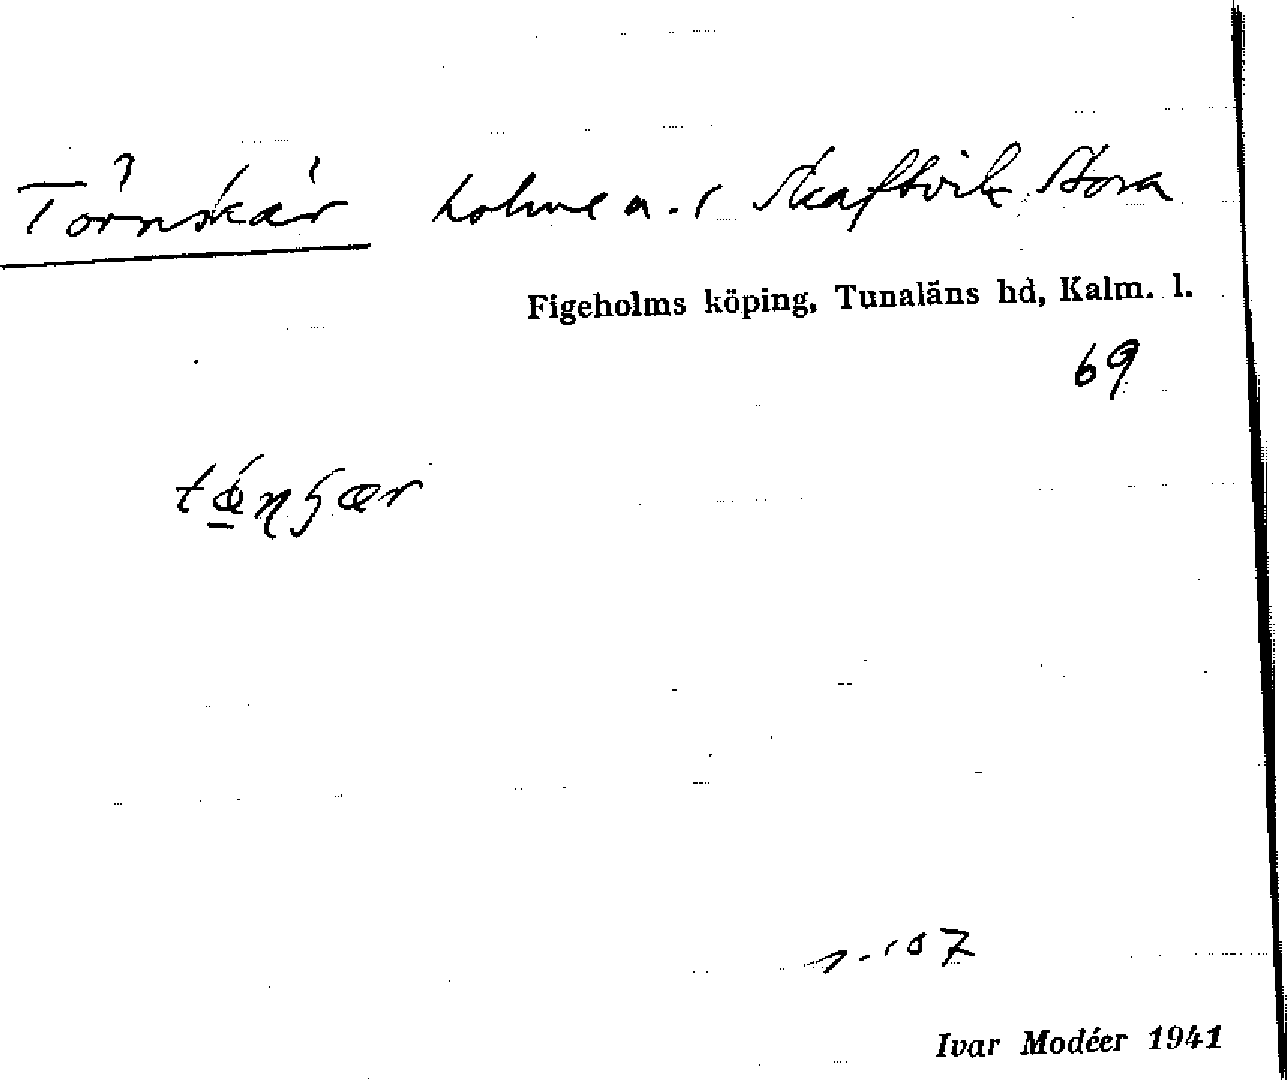 Törnskär holme n. i Skaftvik Stora
Figeholms köping, Tunaläns hd, Kalm. l.
69
s. 107
Ivar Modéer 1941